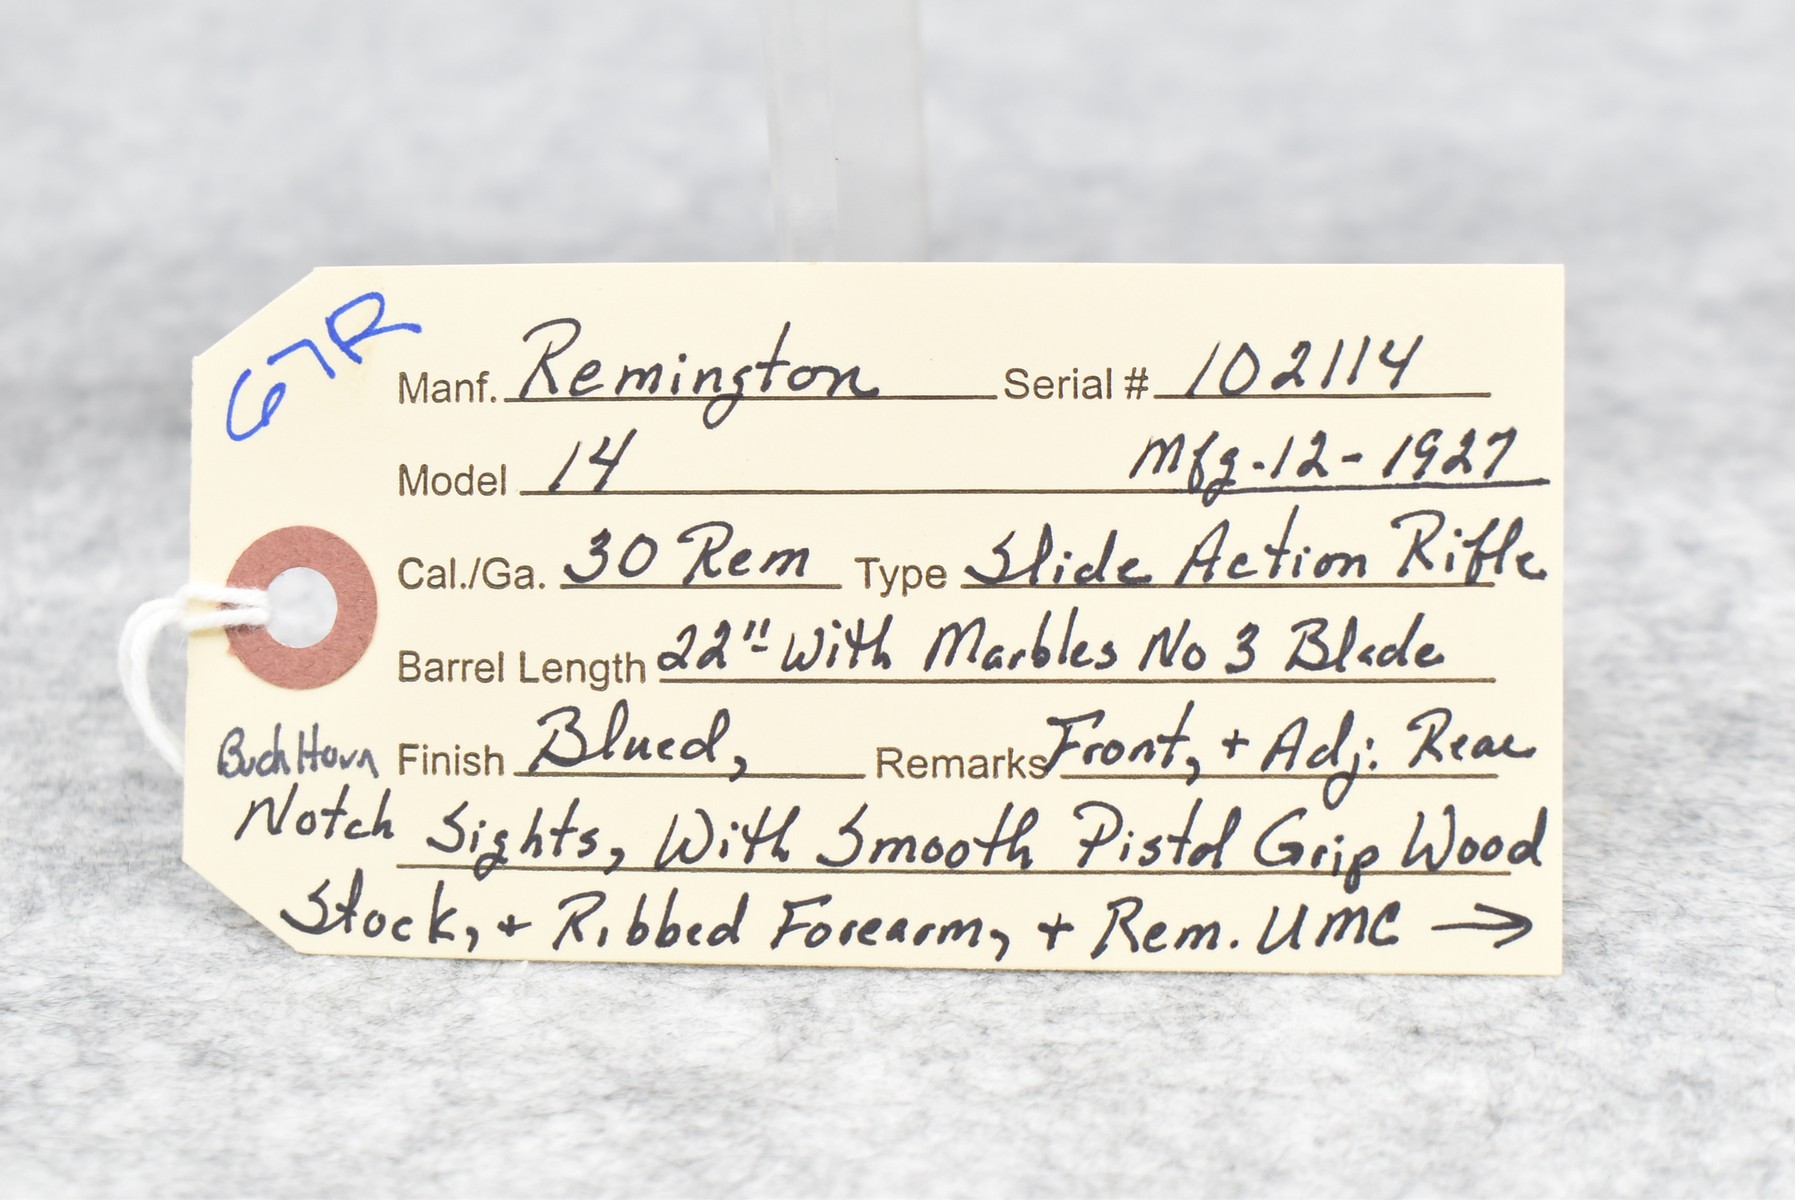 67R
Manf. Remington Serial # 102114
Model 14 Mfg. 12-1927
Cal./Ga. 30 Rem Type Slide Action Rifle
Barrel Length 22" With Marbles No 3 Blade
Finish Blued, Remarks Front, + Adj. Rear
Buck Horn
Notch Sights, With Smooth Pistol Grip Wood
Stock, + Ribbed Forearm, + Rem. UMC →